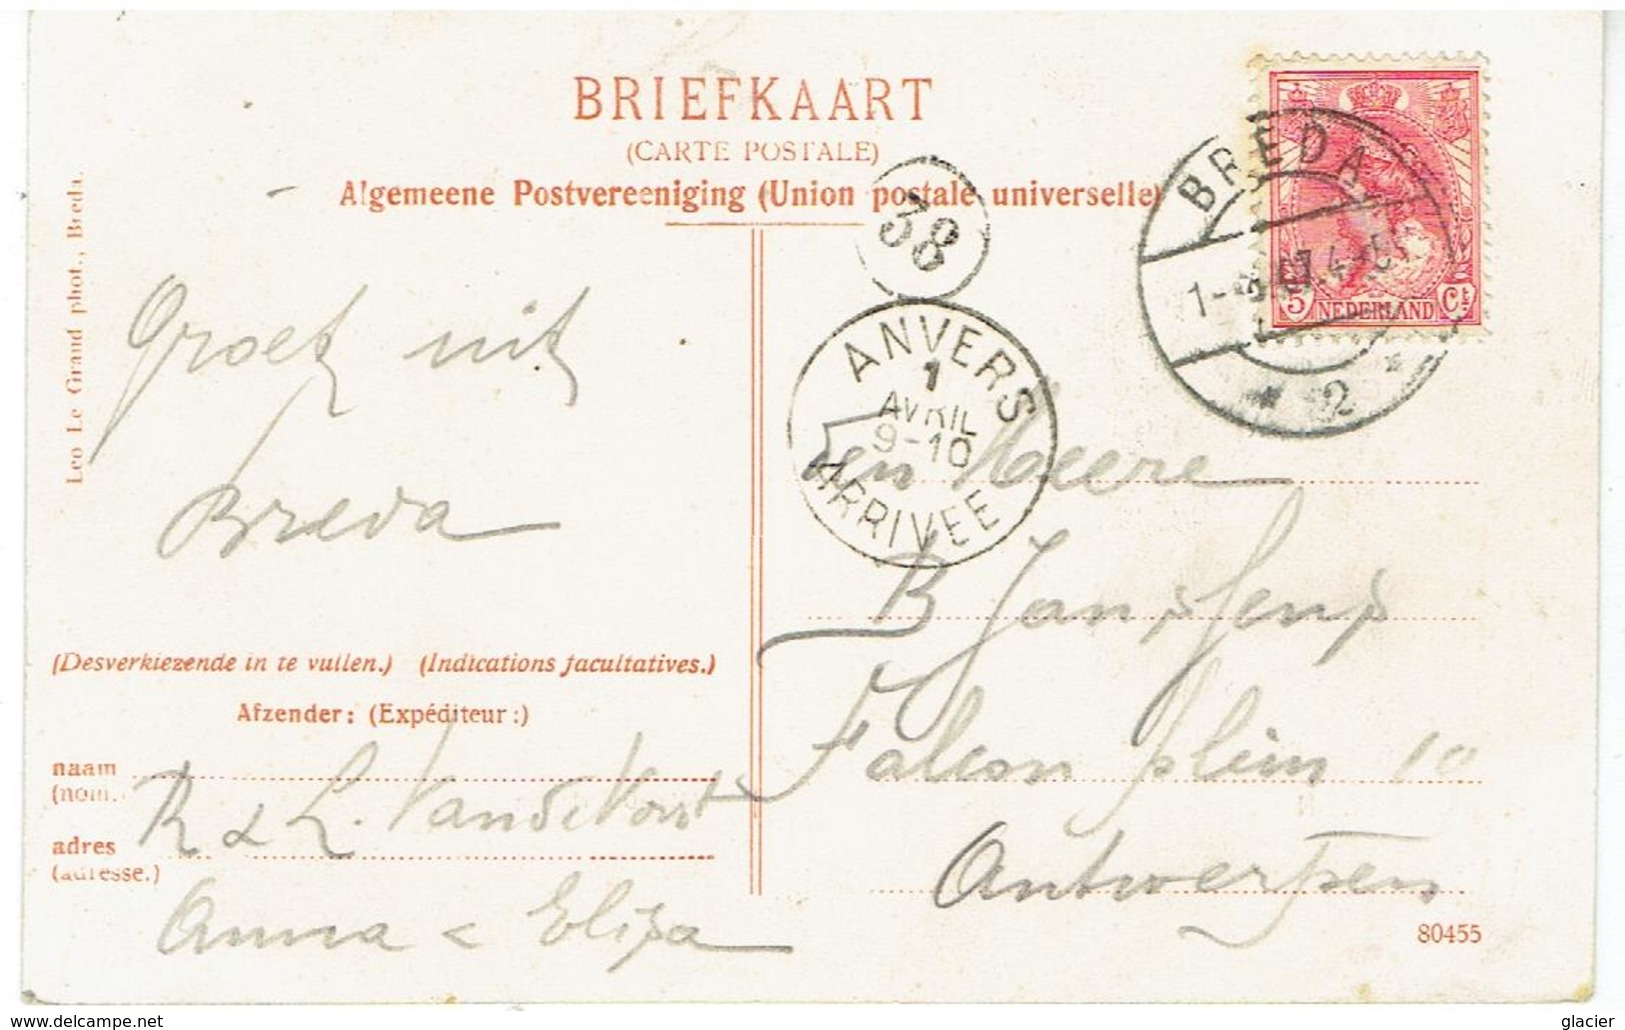 BRIEFKAART
(CARTE POSTALE)
Algemeene Postvereeniging (Union postale universelle)
Leo Le Grand phot., Breda.
Groet uit
Breda
(Desverkiezende in te vullen.) (Indications facultatives.)
Afzender: (Expéditeur:)
naam
(nom.)
R & L. VandeVorst
adres
(adresse.)
Anna & Eliza
38
ANVERS
1
AVRIL
9-10
ARRIVEE
BREDA
2
5 NEDERLAND Ct
den Heere
B Janssens
Falcon plein 10
Antwerpen
80455
www.delcampe.net
glacier